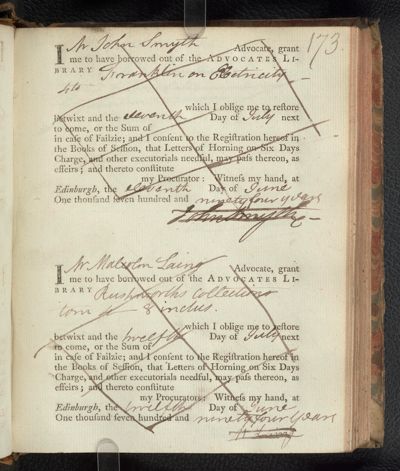 173.
I Mr John Smyth Advocate, grant
me to have borrowed out of the ADVOCATES LI-
BRARY Franklin on Electricity
4to
which I oblige me to reſtore
betwixt and the eleventh Day of July next
to come, or the Sum of
in caſe of Failzie; and I conſent to the Regiſtration hereof in
the Books of Seſſion, that Letters of Horning on Six Days
Charge, and other executorials needful, may paſs thereon, as
effeirs; and thereto conſtitute
my Procurator: Witneſs my hand, at
Edinburgh, the eleventh Day of June
One thouſand ſeven hundred and ninety four years
John Smyth
I Mr Malcolm Laing Advocate, grant
me to have borrowed out of the ADVOCATES LI-
BRARY Rushworths collections
vom 1 8 inclus.
which I oblige me to reſtore
betwixt and the twelfth Day of July next
to come, or the Sum of
in caſe of Failzie; and I conſent to the Regiſtration hereof in
the Books of Seſſion, that Letters of Horning on Six Days
Charge, and other executorials needful, may paſs thereon, as
effeirs; and thereto conſtitute
my Procurator: Witneſs my hand, at
Edinburgh, the twelfth Day of June
One thouſand ſeven hundred and ninety four years
Laing